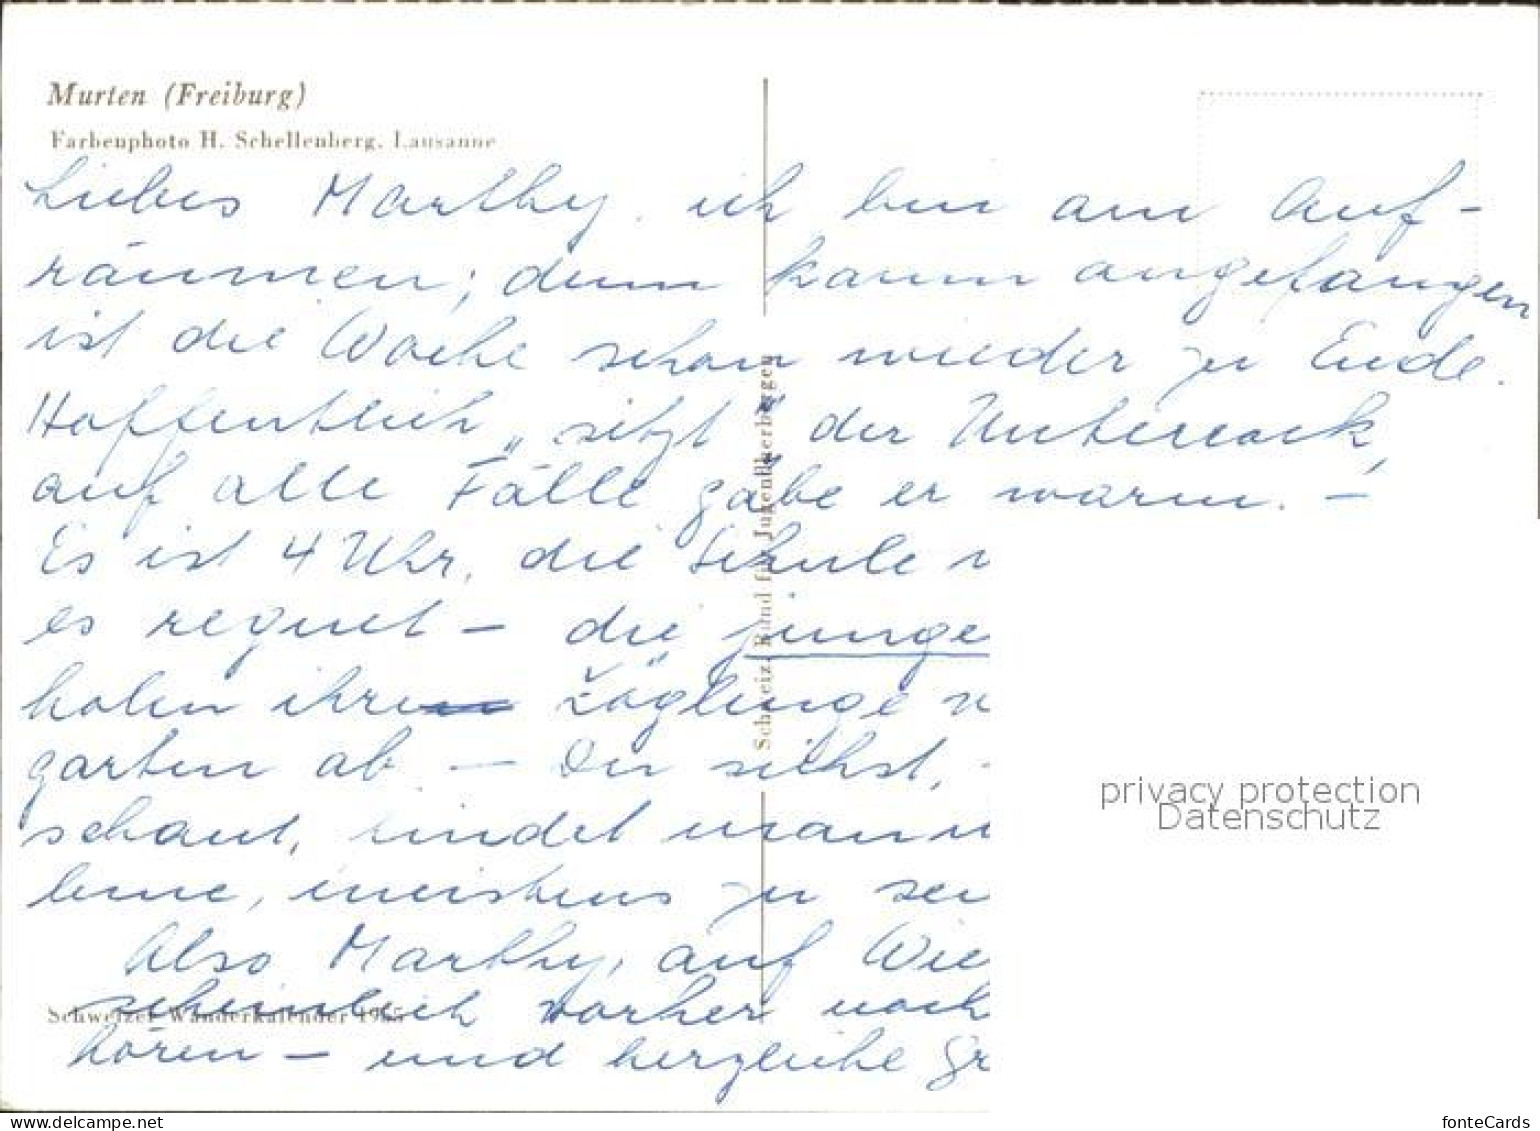 Murten (Freiburg)
Farbenphoto H. Schellenberg, Lausanne
Liebes Marthy. ich bin am Auf-
räumen; denn kaum angefangen
ist die Woche schon wieder zu Ende.
Hoffentlich „sitzt" der Unterrock,
auf alle Fälle gäbe er warm. –
Es ist 4 Uhr, die Schule
es regnet – die junge
holen ihre Zöglinge
garten ab – Du siehst,
schaut, findet man
leine, meistens zu
Also Marthy, auf Wie
scheinlich vorher noch
hören – und herzliche Gr
Schweiz. Bund für Jugendherbergen
Schweizer Wanderkalender 1955
privacy protection
Datenschutz
www.delcampe.net
fonteCards